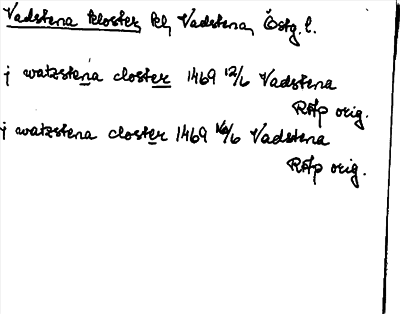 Vadstena kloster kl, Vadstena, Östg. l.
j watzstena closter 1469 12/6 Vadstena
RAp orig.
j watzstena closter 1469 16/6 Vadstena
RAp orig.